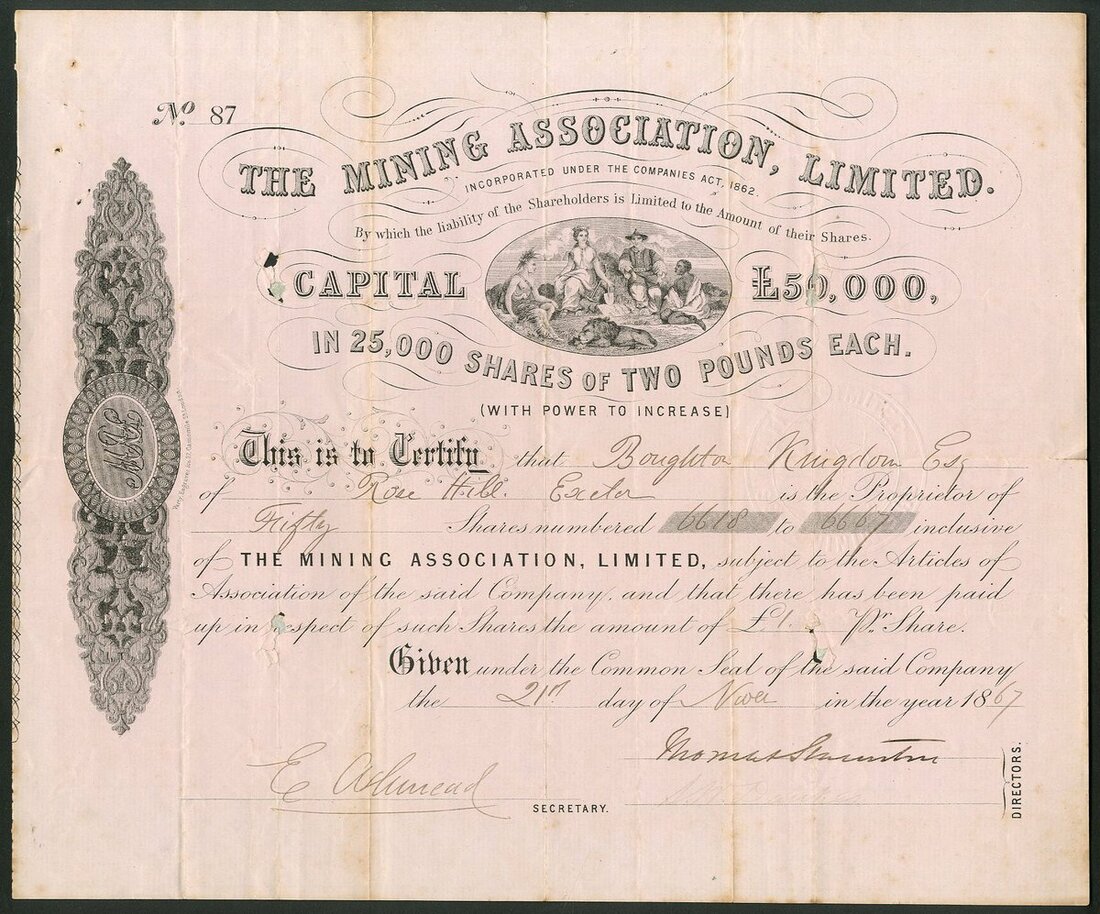 No. 87
THE MINING ASSOCIATION, LIMITED.
INCORPORATED UNDER THE COMPANIES ACT, 1862.
By which the liability of the Shareholders is Limited to the Amount of their Shares.
CAPITAL £50,000,
IN 25,000 SHARES OF TWO POUNDS EACH.
(WITH POWER TO INCREASE)
This is to Certify that Boughton Kingdom Esq
of Rose Hill. Exeter is the Proprietor of
Fifty Shares numbered 6618 to 6667 inclusive
of THE MINING ASSOCIATION, LIMITED, subject to the Articles of
Association of the said Company, and that there has been paid
up in respect of such Shares the amount of £1. Pr. Share.
Given under the Common Seal of the said Company
the 21st day of Novr in the year 1867
Thomas Staunton
E Ashmead
SECRETARY.
DIRECTORS.